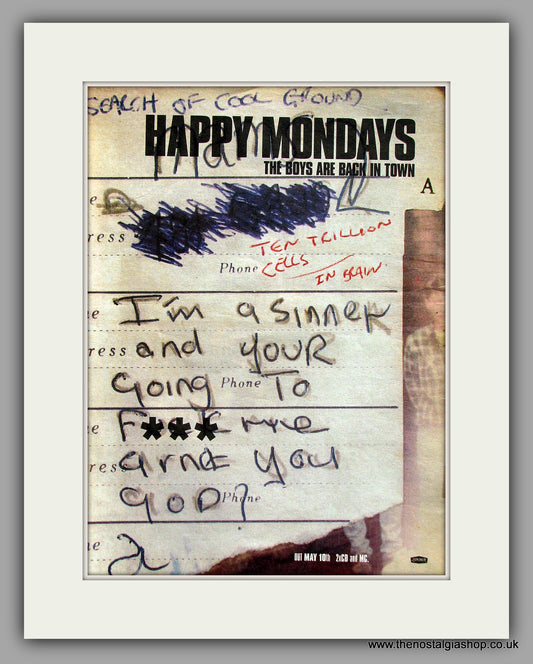 SEARCH OF COOL GROUND
HAPPY MONDAYS
THE BOYS ARE BACK IN TOWN
A
e
ress
TEN TRILLION
Phone CELLS
IN BRAIN
e I'm a sinner
ress and YOUR
Going Phone To
e F***K me
ress arnt you
GOD? Phone
e
OUT MAY 10th 2xCD and MC.
www.thenostalgiashop.co.uk